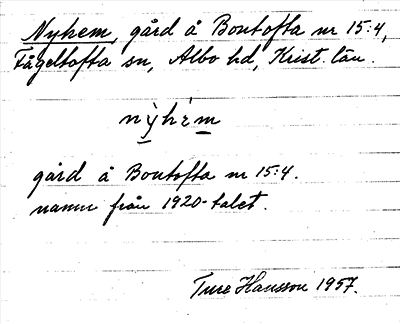 Nyhem, gård å Bontofta nr 15:4,
Fågeltofta sn, Albo hd, Krist. län.
nỳhém
gård å Bontofta nr 15:4.
namn från 1920-talet.
Ture Hansson 1957.